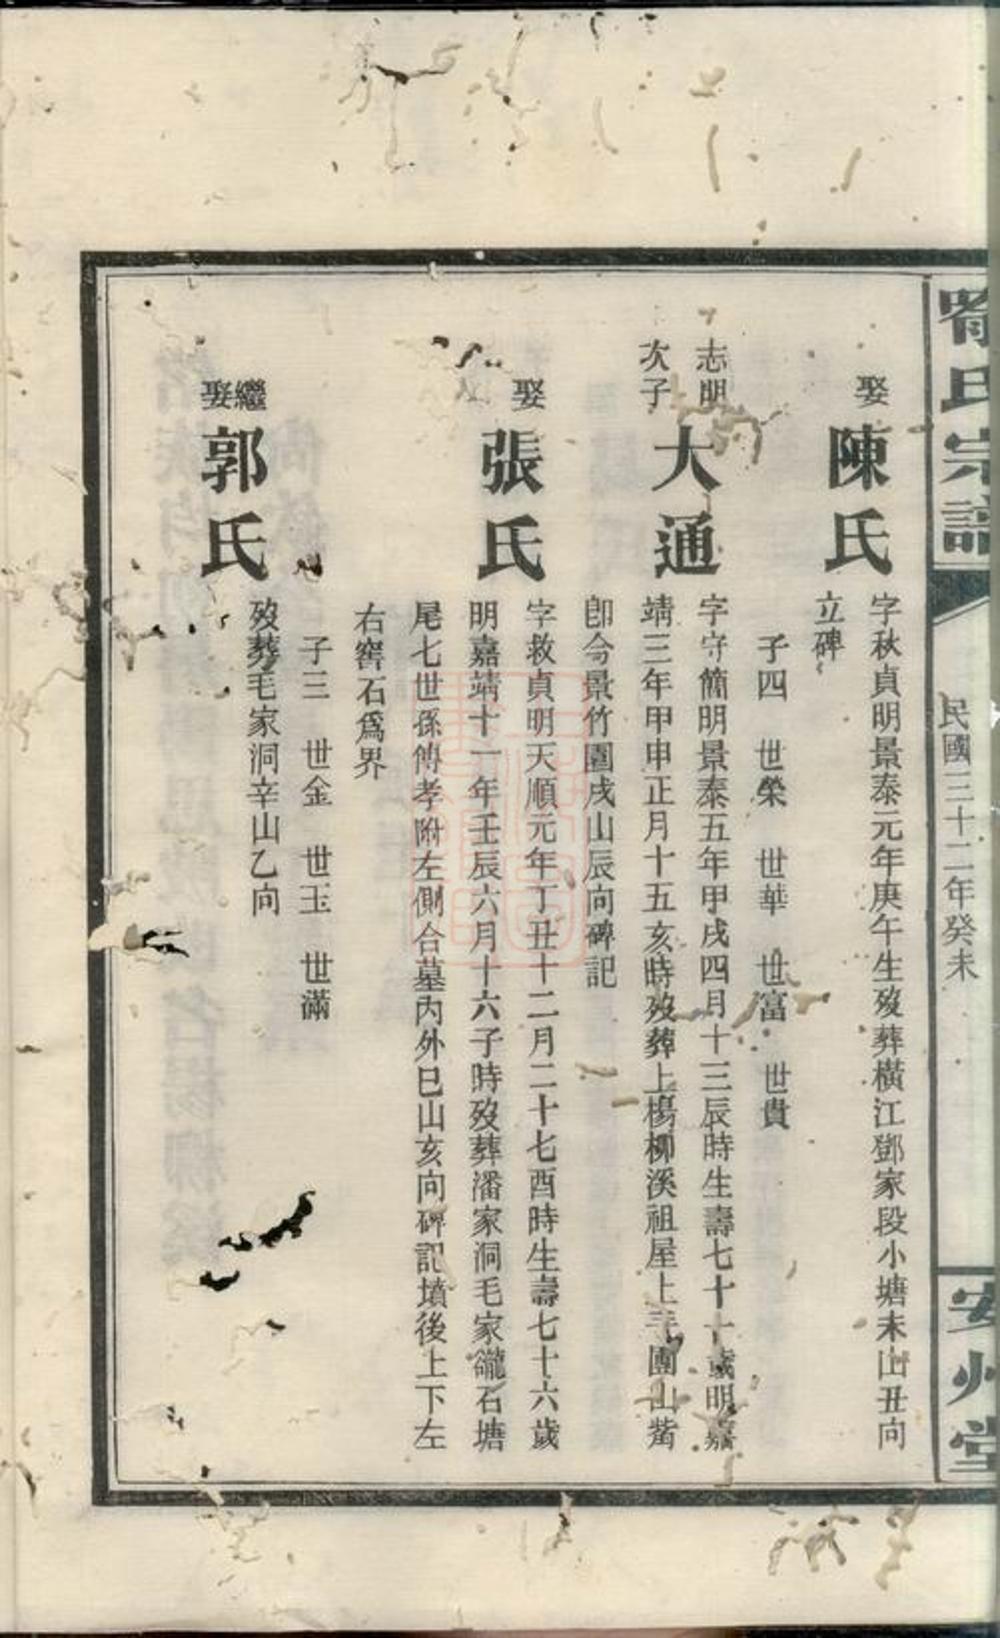 氏宗譜
民國三十二年癸未
安州堂
娶陳氏
字秋貞明景泰元年庚午生歿葬橫江鄧家段小塘未山丑向
立碑
子四 世榮 世華 世富 世貴
志明次子大通
字守簡明景泰五年甲戌四月十三辰時生壽七十十歲明嘉
靖三年甲申正月十五亥時歿葬上楊柳溪祖屋上手團山觜
卽今景竹園戌山辰向碑記
娶張氏
字救貞明天順元年丁丑十二月二十七酉時生壽七十六歲
明嘉靖十一年壬辰六月十六子時歿葬潘家洞毛家龖石塘
尾七世孫傳孝附左側合墓內外巳山亥向碑記墳後上下左
右窖石爲界
子三 世金 世玉 世滿
繼娶郭氏
歿葬毛家洞辛山乙向